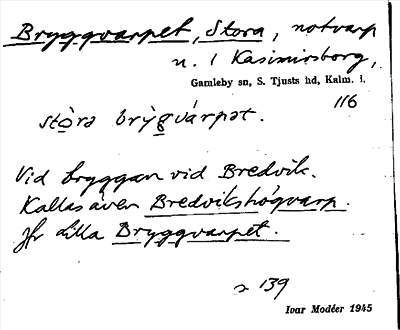 Bryggvarpet, Stora, notvarp
n. 1 Kasimirsborg,
Gamleby sn, S. Tjusts hd, Kalm. l.
116
stòra brỳgvárpət.
Vid bryggan vid Bredvik.
Kallas även Bredvikshögvarp.
Jfr Lilla Bryggvarpet.
s 139
Ivar Modéer 1945